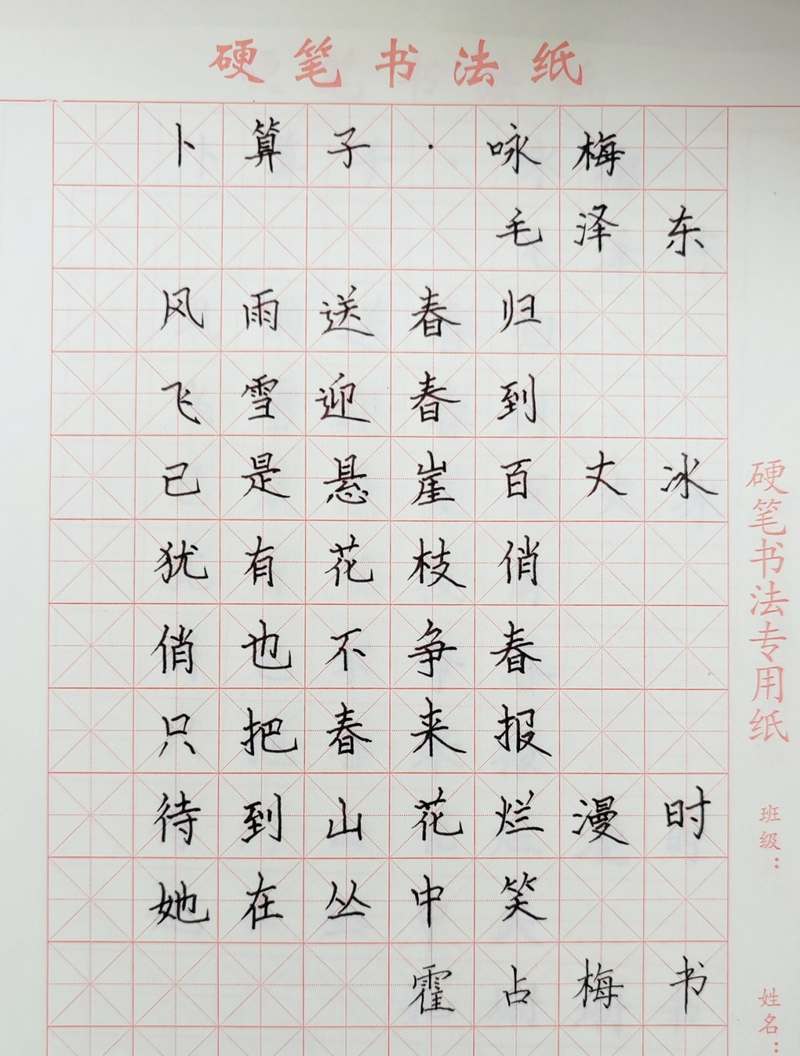 硬笔书法纸
卜算子·咏梅
毛泽东
风雨送春归
飞雪迎春到
己是悬崖百丈冰
犹有花枝俏
俏也不争春
只把春来报
待到山花烂漫时
她在丛中笑
霍占梅书
硬笔书法专用纸
班级：
姓名：